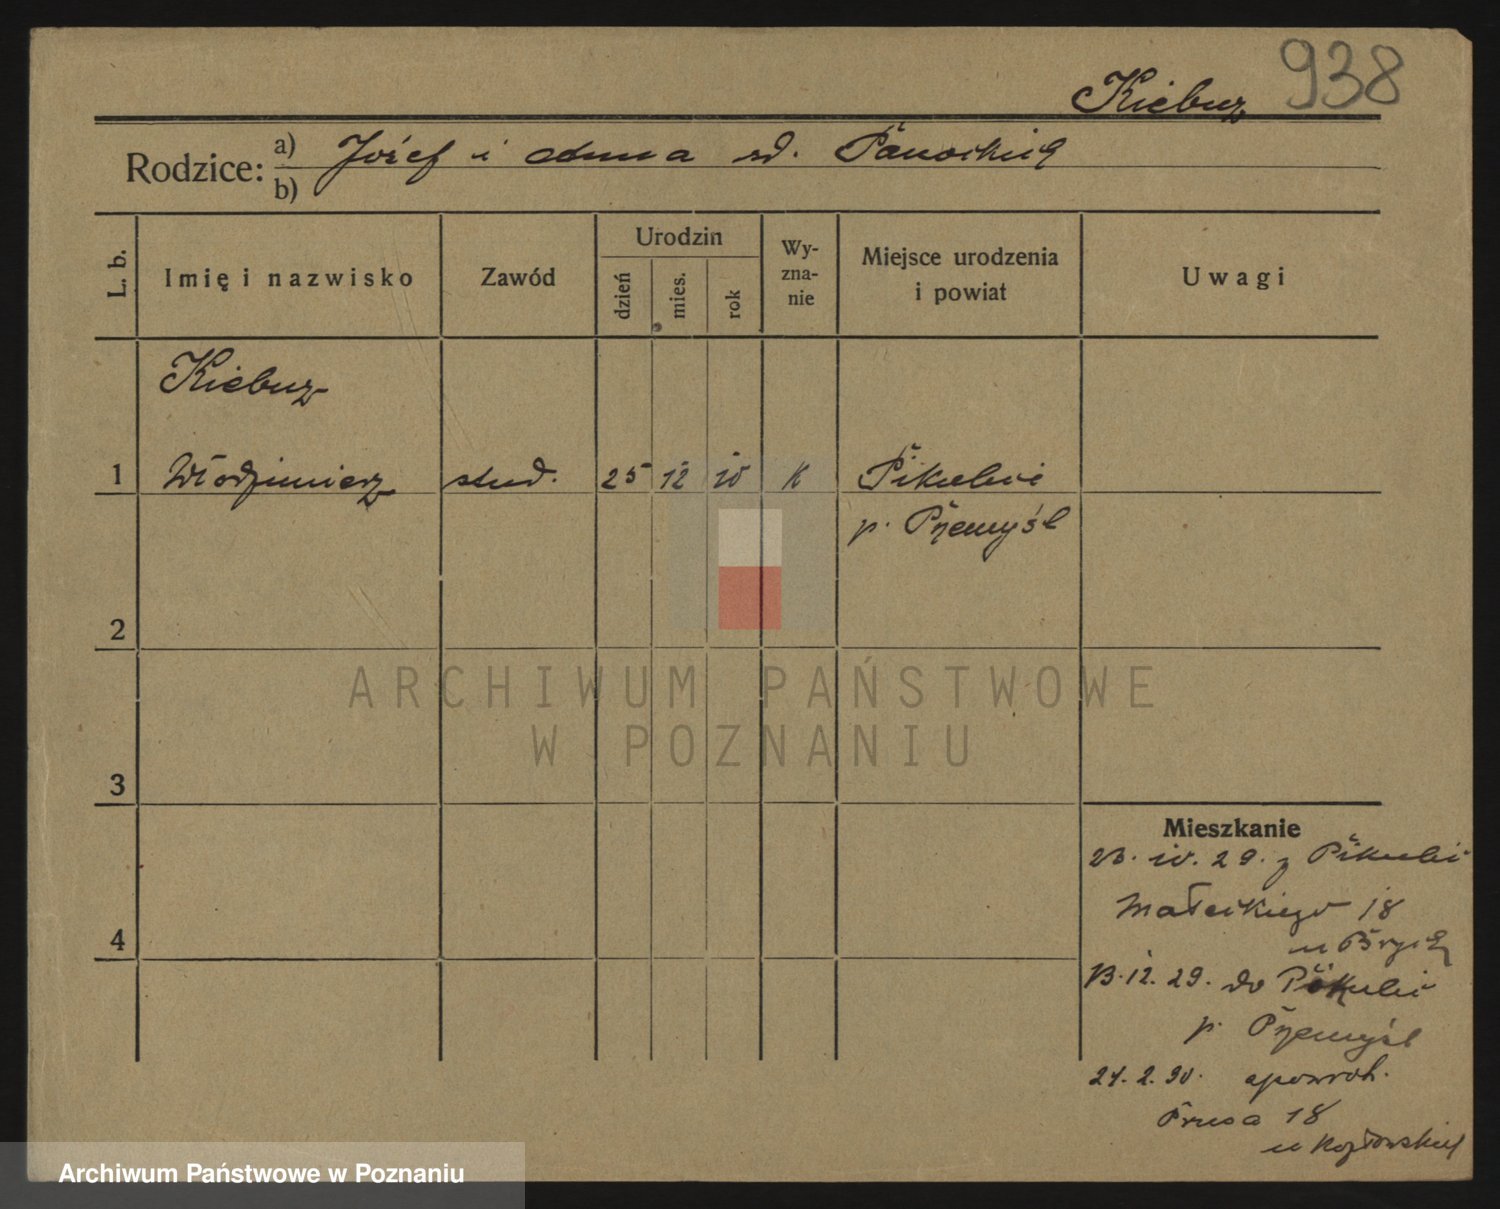 938
Kiebuz
Rodzice: a) Józef i Anna zd. Panockich
b)
L. b.
Imię i nazwisko
Zawód
Urodzin
dzień
mies.
rok
Wy-
zna-
nie
Miejsce urodzenia
i powiat
Uwagi
Kiebuz
1 Włodzimierz stud. 25 12 10 K Pikulice
p. Przemyśl
2
3
4
Mieszkanie
10. 29. z Pikulic
Małeckiego 18
u
13.12.29. do Pikulic
p. Przemyśl
2. 30. z powrot.
Prusa 18
u Kozłowskiej
ARCHIWUM PAŃSTWOWE
W POZNANIU
Archiwum Państwowe w Poznaniu